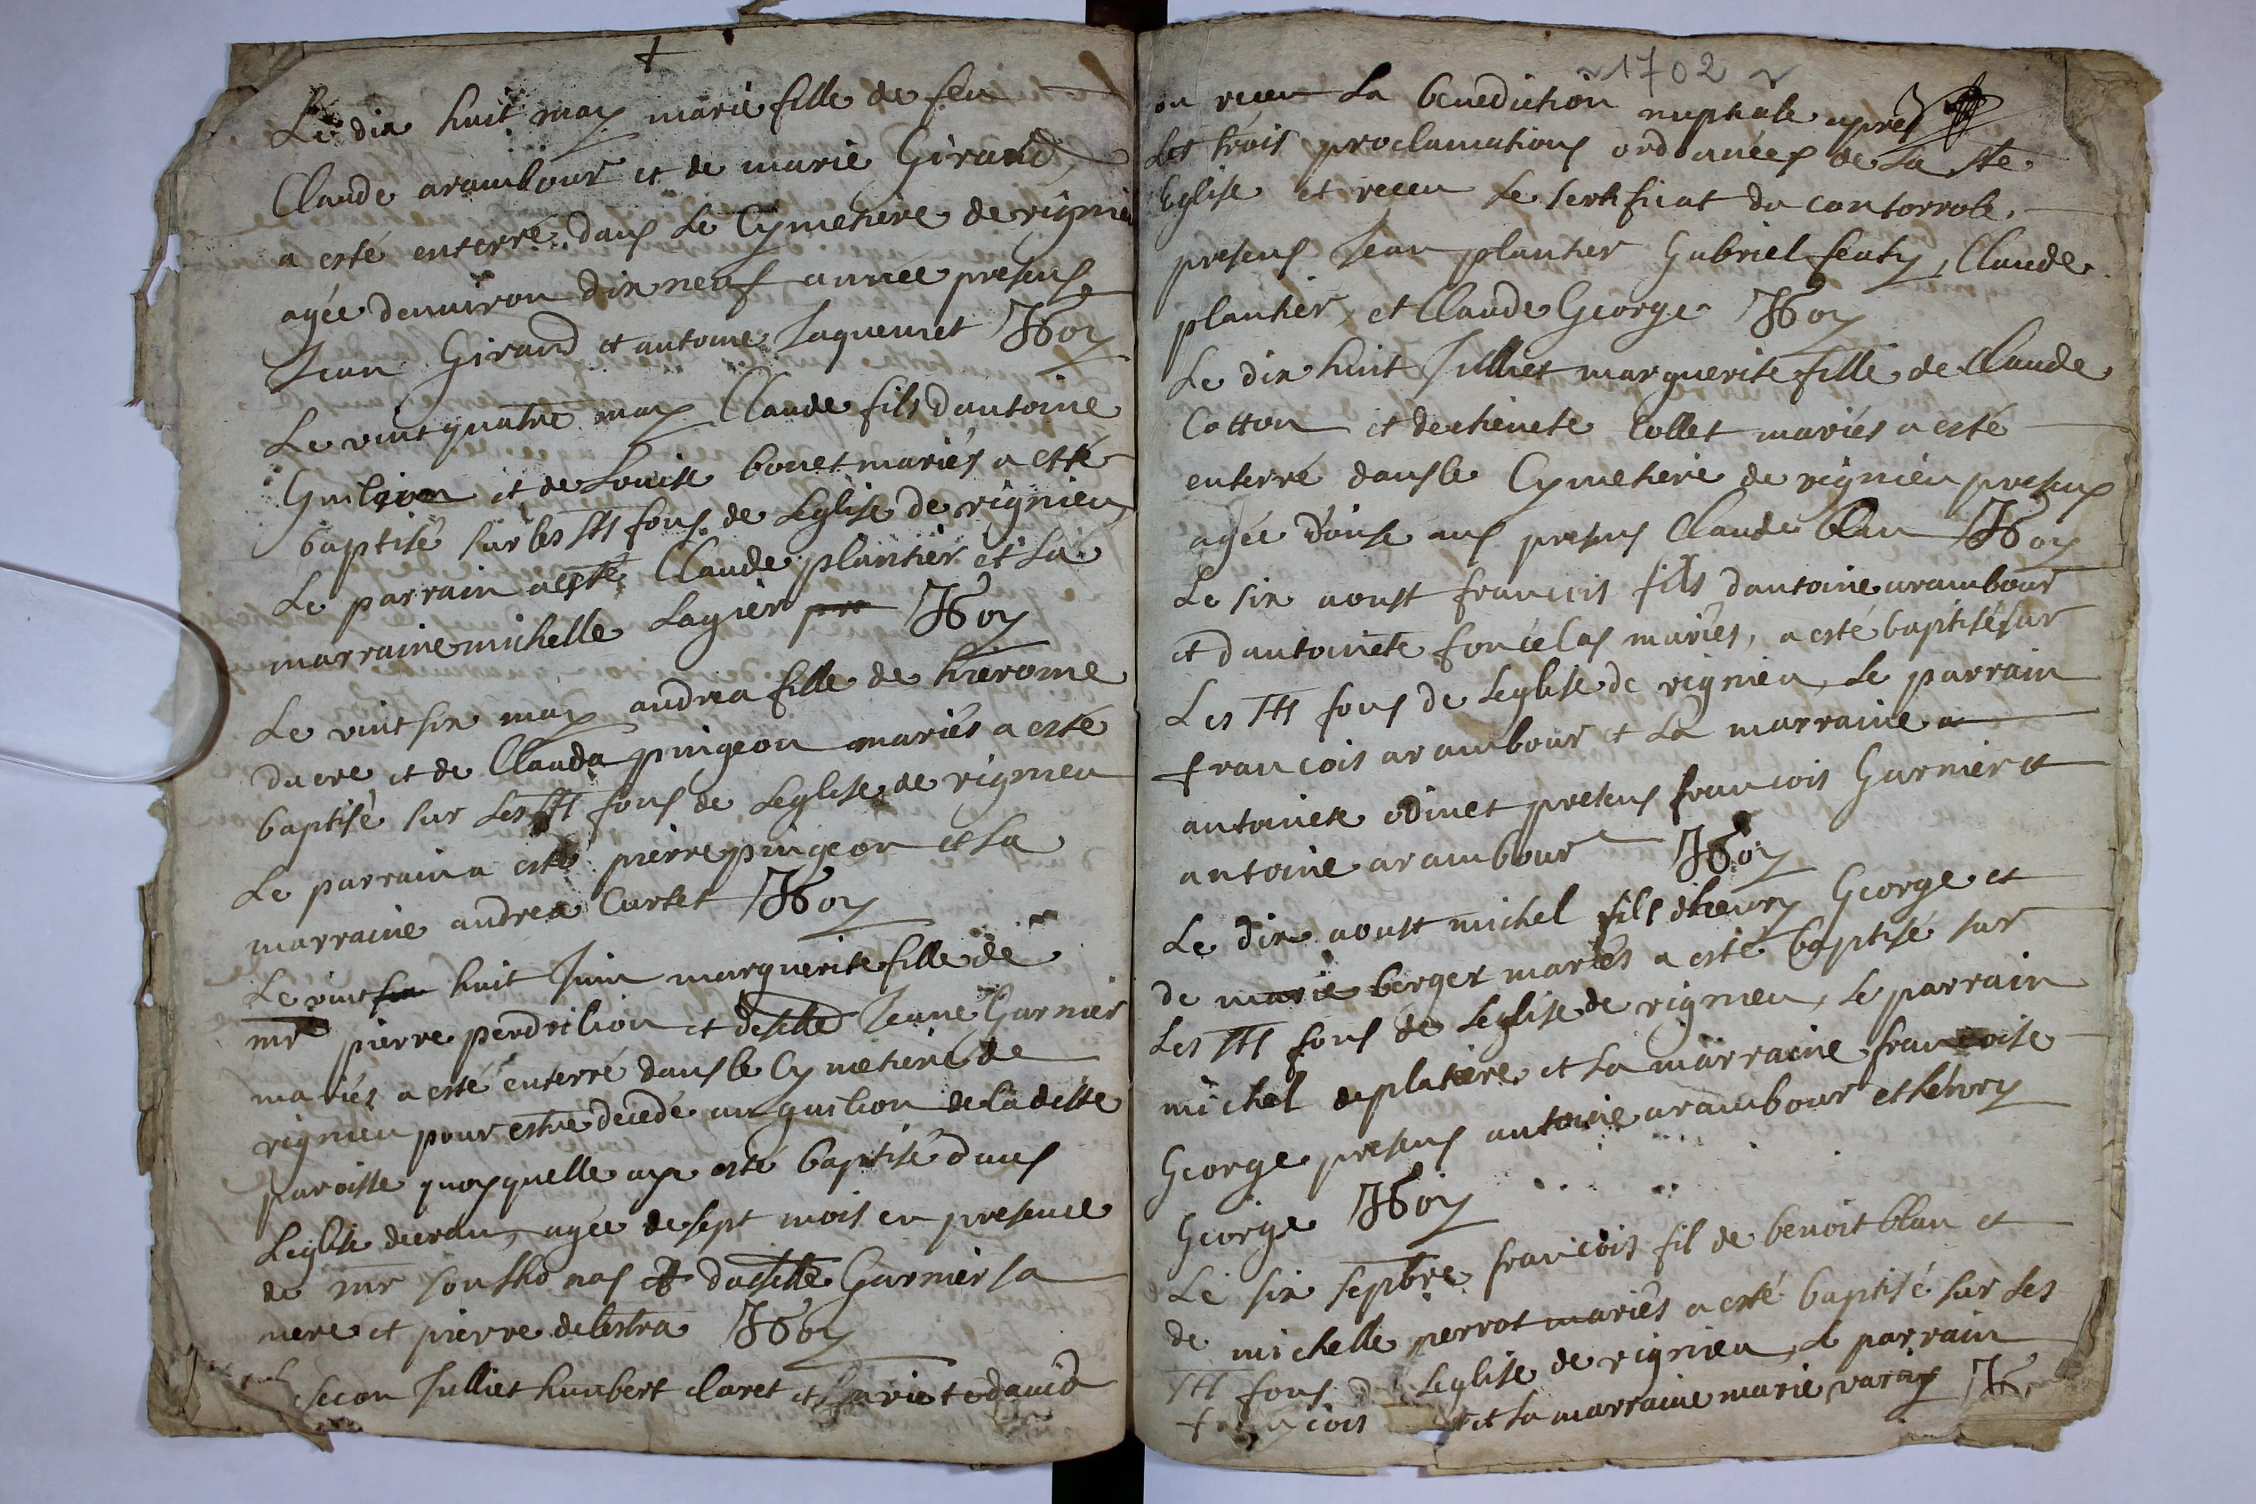 Le dix huit may marie fille de feu
Claude arambour et de marie Girand
a esté enterré dans Le Cymetiere de rignieu
agée denuiron dix neuf année presens
Jean Girand et antoine Jaquemet
Le vint quatre may Claude fils dantoine
Guilion et de Louise bouet mariés a esté
baptisé sur les Sts fons de Leglise de rignieu
Le parrain a esté Claude plantier et La
marraine michelle Lagier
Le vint six may andrea fille de hierome
ducre et de Clauda pingeon mariés a esté
baptisé sur Les Sts fons de Leglise de rignieu
Le parrain a esté pierre pingeon et La
marraine andrea Curtet
Le vint six huit Juin marguerite fille de
mr pierre perdrilion et deselle Jeane Garnier
mariés a esté enterré dans le Cymetiere de
rignieu pour estre decedé au guilion de la ditte
paroisse quoy quelle aye esté baptisé dans
Leglise agée de sept mois en presence
de mr Garnier sa
mere et pierre delestra
secon Julliet humbert claret et david
1702
on receu La benediction nuptiale apres
Les trois proclamations ordonnées de La Ste
Eglise et receu Le sertificat du contorrole
presens Jean plantier Gabriel Claude
plantier et Claude George
Le dix huit Julliet marguerite fille de Claude
Cotton et detienete Collet mariés a esté
enterré dans le Cymetiere de rignieu presens
agée donse ans presens Claude blan
Le six aoust francois fils dantoine arambour
et dantoinete foncelas mariés, a esté baptisé sur
Les Sts fons de Leglise de rignieu, Le parrain
francois arambour et La marraine a
antoinete odinet presens francois Garnier et
antoine arambour
Le dix aoust michel fils dhenry George et
de marie berger mariés a esté baptisé sur
Les Sts fons de Leglise de rignieu, Le parrain
michel deplatiere et La marraine francoise
George presens antoine arambour et henry
George
Le six sepbre francois fil de benoit blan et
de michelle perrot mariés a esté baptisé sur Les
Sts fons Leglise de rignieu, Le parrain
francois et La marraine marie